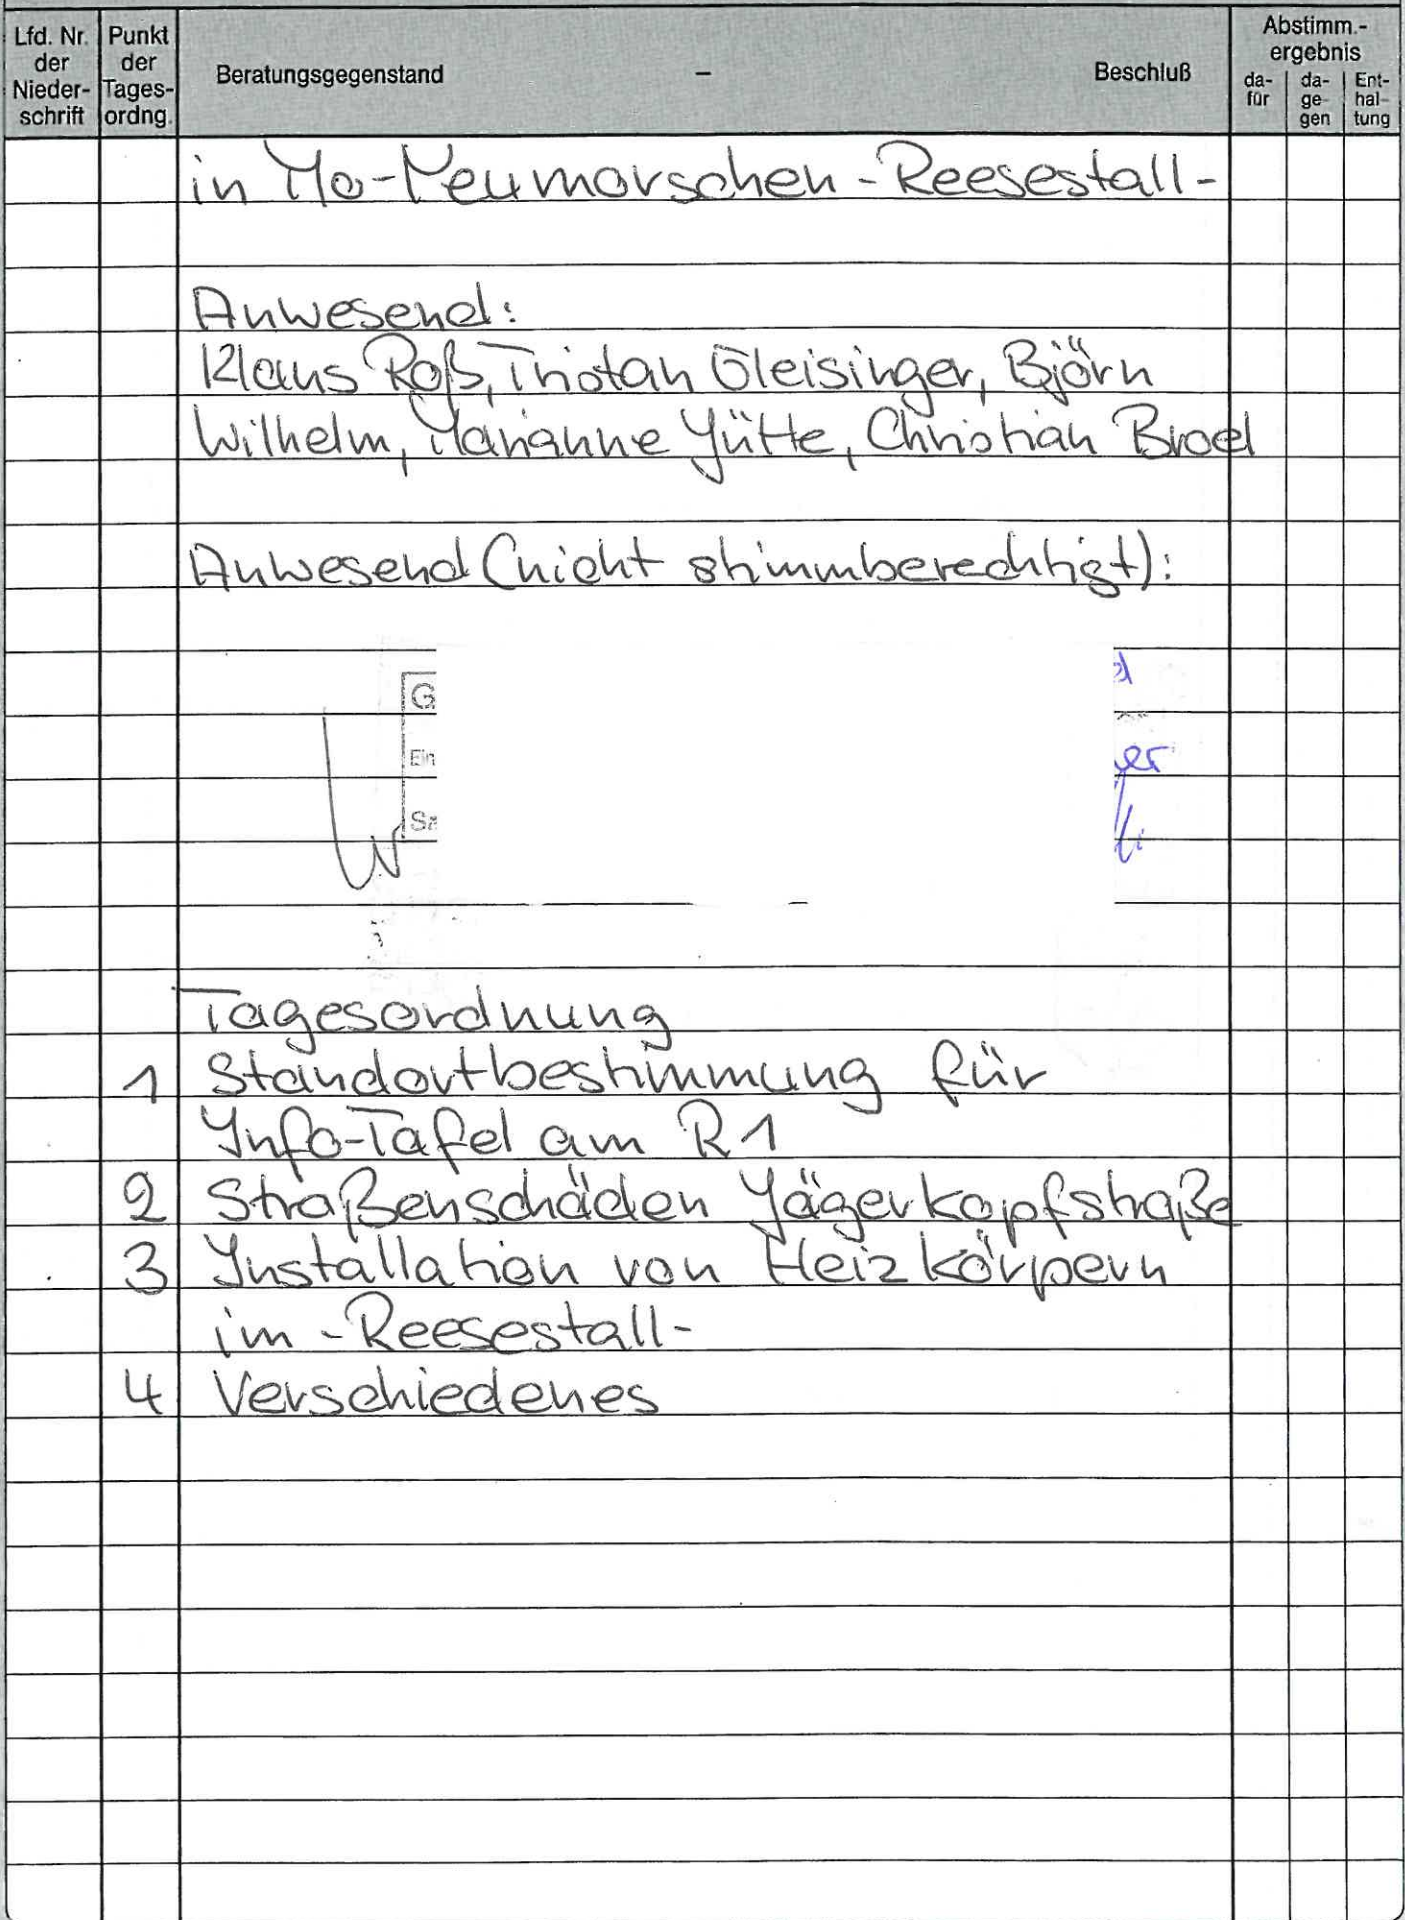 Lfd. Nr. der Nieder- schrift
Punkt der Tages- ordng.
Beratungsgegenstand – Beschluß
Abstimm.- ergebnis
da- für
da- ge- gen
Ent- hal- tung
in Mo-Neumorschen -Reesestall-
Anwesend:
Klaus Roß, Tristan Gleisinger, Björn
Wilhelm, Marianne Jütte, Christian Broel
Anwesend (nicht stimmberechtigt):
G
Ein
er
Tagesordnung
1 Standortbestimmung für
Info-Tafel am R1
2 Straßenschäden Jägerkopfstraße
3 Installation von Heizkörpern
im -Reesestall-
4 Verschiedenes